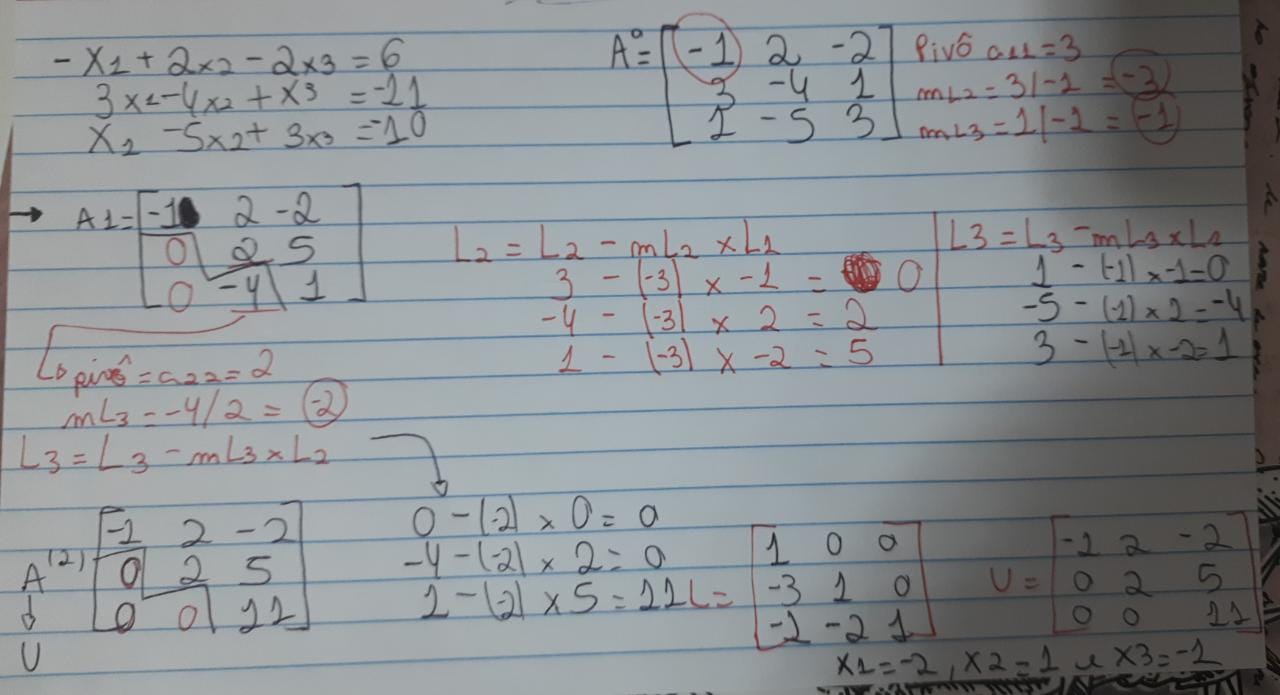 -x1 + 2x2 - 2x3 = 6
3x1 - 4x2 + x3 = -11
x1 - 5x2 + 3x3 = -10
A⁰ = [ -1 2 -2
3 -4 1
1 -5 3 ]
Pivô a11 = 3
mL2 = 3/-1 = -3
mL3 = 1/-1 = -1
→ A1 = [ -1 2 -2
0 2 5
0 -4 1 ]
L2 = L2 - mL2 x L1
3 - (-3) x -1 = 0
-4 - (-3) x 2 = 2
1 - (-3) x -2 = 5
L3 = L3 - mL3 x L1
1 - (-1) x -1 = 0
-5 - (-1) x 2 = -4
3 - (-1) x -2 = 1
pivô = a22 = 2
mL3 = -4/2 = -2
L3 = L3 - mL3 x L2
A⁽²⁾ [ -1 2 -2
0 2 5
0 0 11 ]
↓
U
0 - (-2) x 0 = 0
-4 - (-2) x 2 = 0
1 - (-2) x 5 = 11
L = [ 1 0 0
-3 1 0
-1 -2 1 ]
U = [ -1 2 -2
0 2 5
0 0 11 ]
x1 = -2, x2 = 1 e x3 = -1